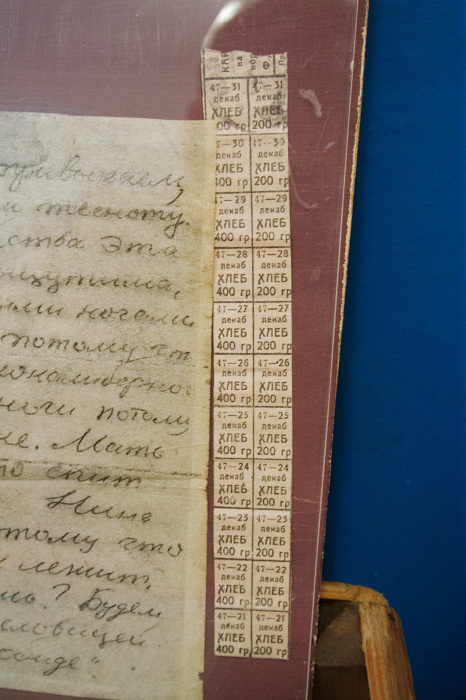 привыкаем,
тесноту.
эта
ногами
потому
ночи потому
не. Мать
спит
Нина
потому что
лежит.
? Будем
КАР
на
нор
Ф
47—31 47—31
декаб декаб
ХЛЕБ ХЛЕБ
00 гр 200 гр
7—30 47—30
декаб декаб
ХЛЕБ ХЛЕБ
400 гр 200 гр
47—29 47—29
декаб декаб
ХЛЕБ ХЛЕБ
400 гр 200 гр
47—28 47—28
декаб декаб
ХЛЕБ ХЛЕБ
400 гр 200 гр
47—27 47—27
декаб декаб
ХЛЕБ ХЛЕБ
400 гр 200 гр
47—26 47—26
декаб декаб
ХЛЕБ ХЛЕБ
400 гр 200 гр
47—25 47—25
декаб декаб
ХЛЕБ ХЛЕБ
400 гр 200 гр
47—24 47—24
декаб декаб
ХЛЕБ ХЛЕБ
400 гр 200 гр
47—23 47—23
декаб декаб
ХЛЕБ ХЛЕБ
400 гр 200 гр
47—22 47—22
декаб декаб
ХЛЕБ ХЛЕБ
400 гр 200 гр
47—21 47—21
декаб декаб
ХЛЕБ ХЛЕБ
400 гр 200 гр